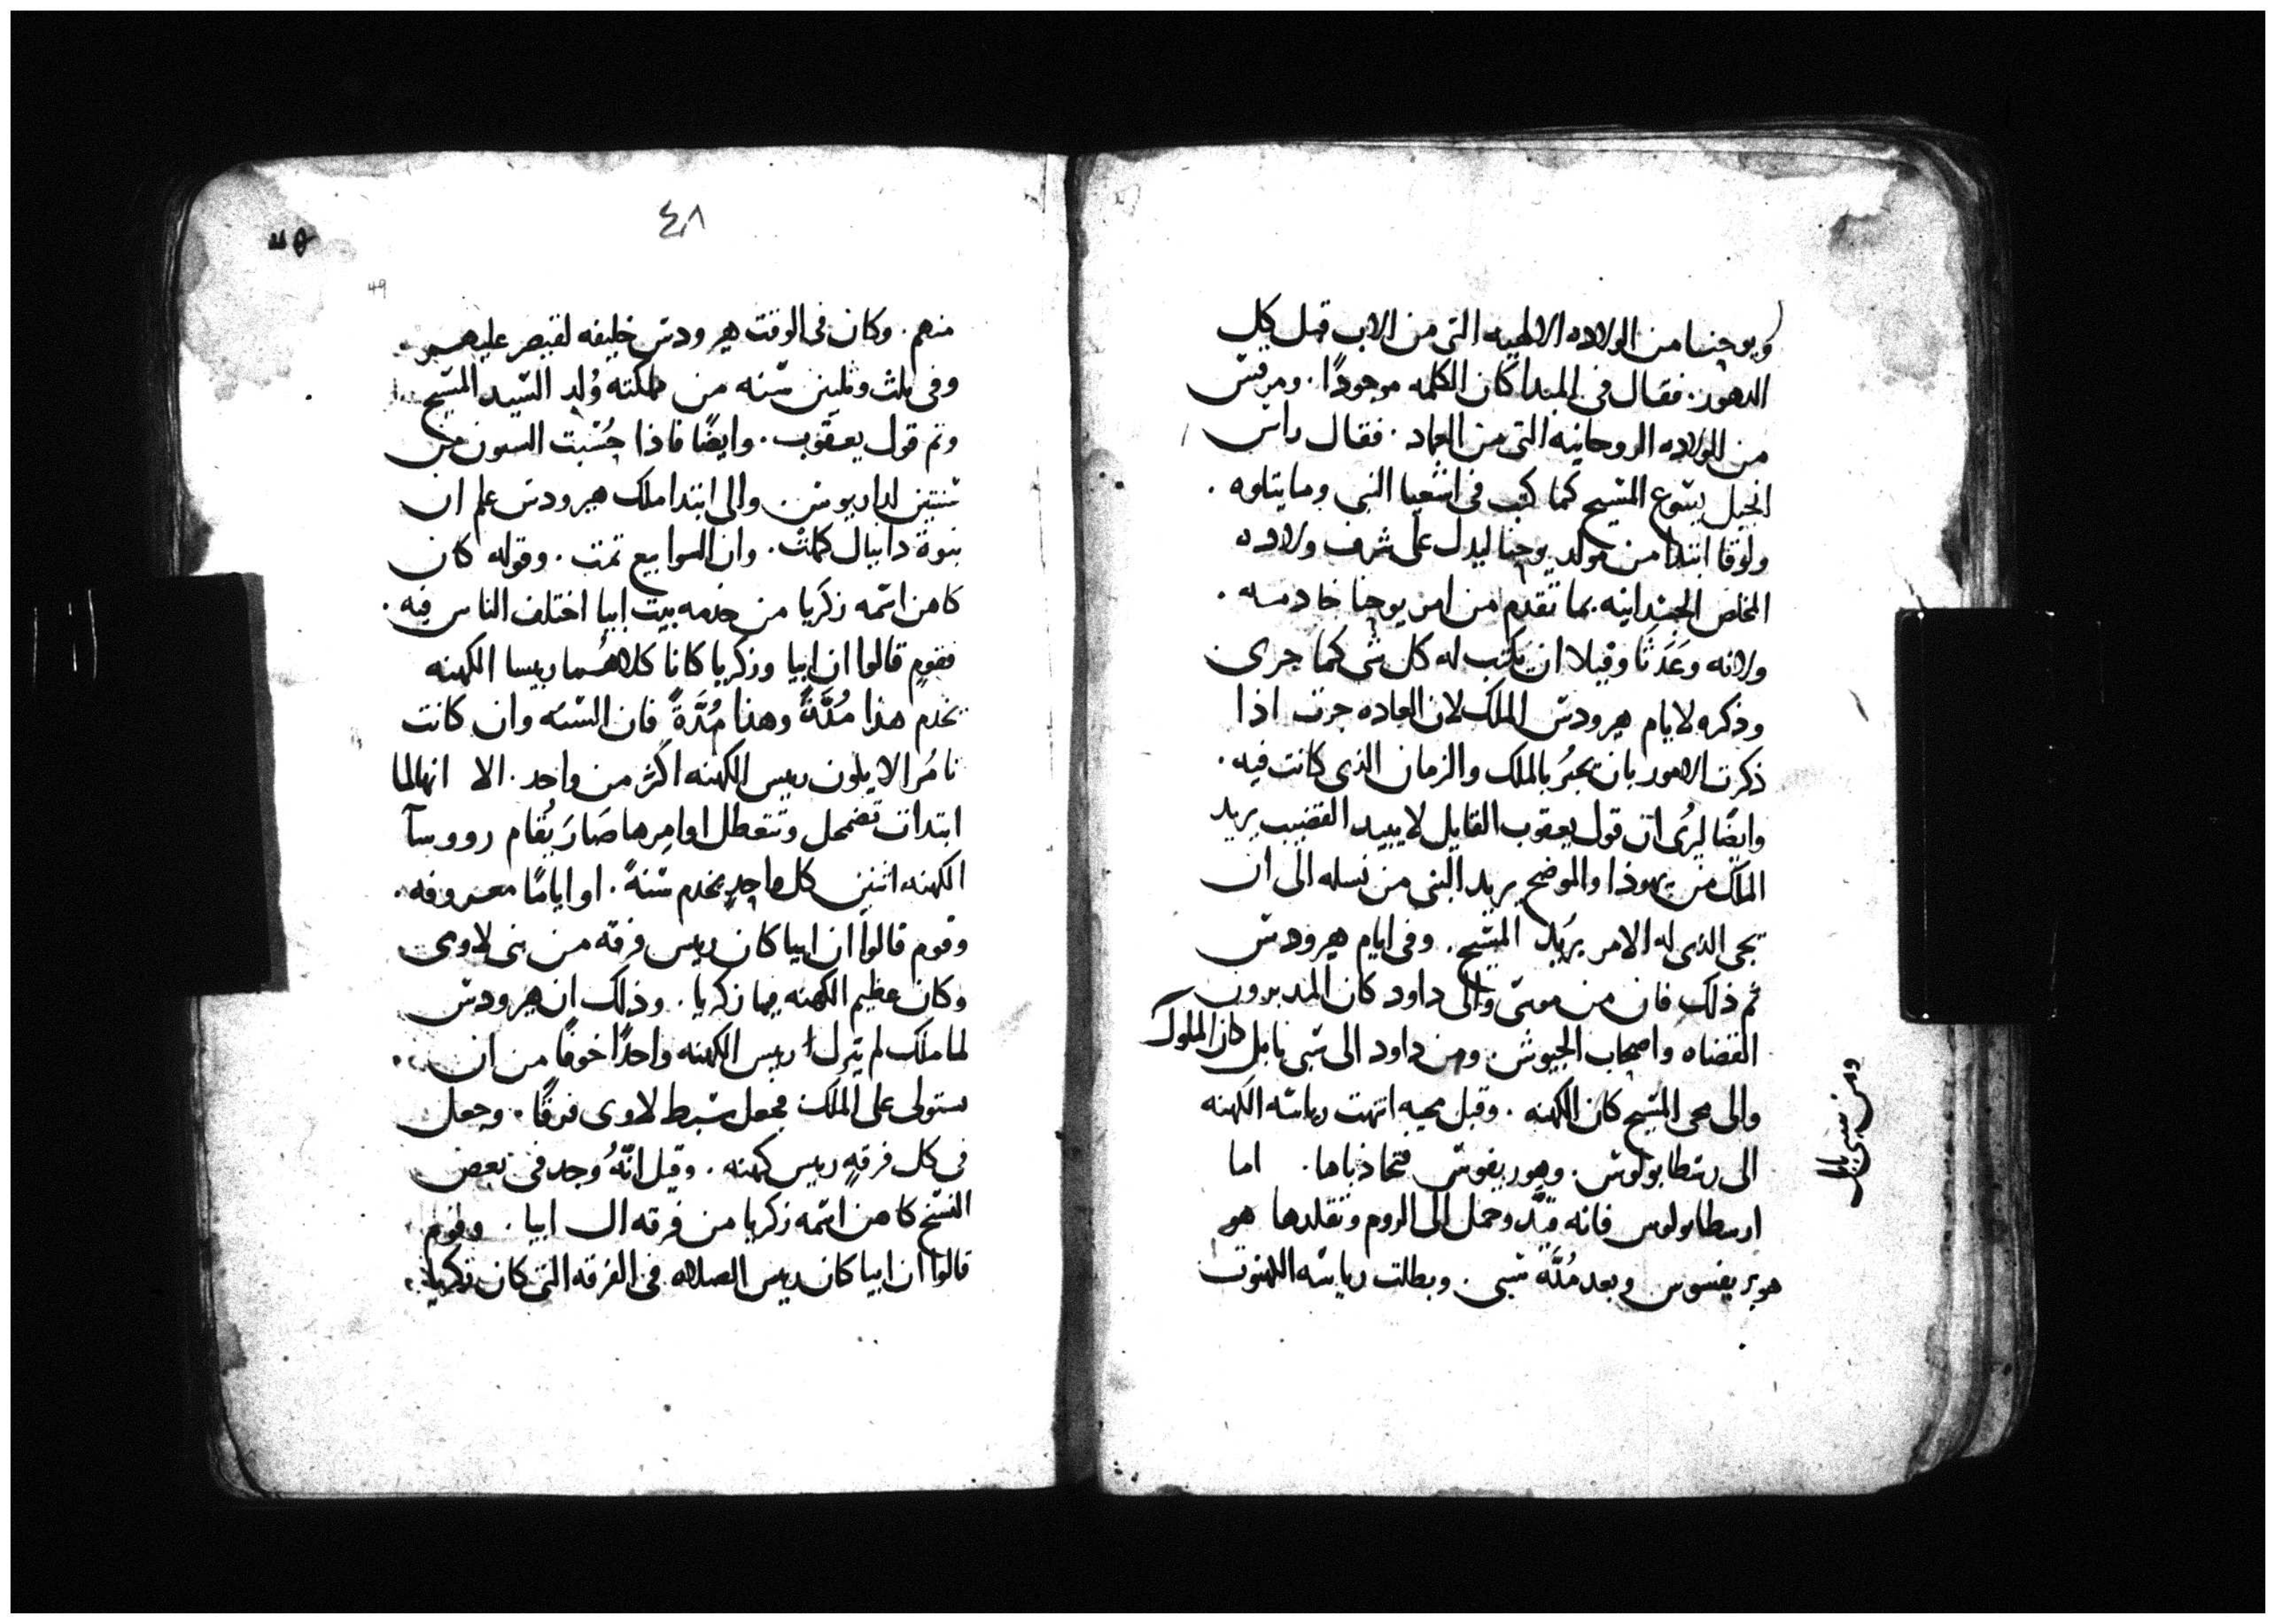 ويوحنا من الولاده الالهيه التى من الاب قبل كل
الدهور. فقال فى المبدا كان الكلمه موجودًا. ومرقس
من الولاده الروحانيه التى من العماد. فقال راس
انجيل يسوع المسيح كما كتب فى اشعيا النبى وما يتلوه.
ولوقا ابتدا من مولد يوحنا ليدل على شرف ولاده
المخلص الجسدانيه بما تقدم من امر يوحنا خادمه.
ولانه وعد ثاوفيلا ان يكتب له كل شى كما جرى
وذكره لايام هيرودس الملك لان العاده جرت اذا
ذكرت الامور بان تخبرُ بالملك والزمان الذى كانت فيه.
وايضًا ليُرى ان قول يعقوب القايل لا يبيد القضيب يريد
الملك من يهوذا والموضح يريد النبى من نسله الى ان
يجى الذى له الامر يريد المسيح. وفى ايام هيرودس
تم ذلك فان من موسى والى داود كان المدبرون
القضاه واصحاب الجيوش. ومن داود الى سبى بابل كان الملوك
ومن سبى بابل
والى مجى المسيح كان الكهنه. وقبل مجيه انتهت رياسه الكهنه
الى رسطابولوس. وهوريقوس فتحاذباها. اما
ارسطابولوس فانه قيّد وحمل الى الروم وتقلدها هو
هوبريفسوس وبعد مُدَّه سبى. وبطلت رياسه الكهنوت
٤٨
49
منهم. وكان فى الوقت هيرودس خليفه لقيصر عليهم
وفى ثلث وثلثين سنه من مملكته وُلد السيد المسيح
وتم قول يعقوب. وايضًا فاذا حُسبت السنون من
سنتين لداريوس والى ابتدا ملك هيرودس علم ان
نبوة دانيال كملت. وان السوابيع تمت. وقوله كان
كاهن اسمه زكريا من خدمه بيت ابيا اختلف الناس فيه.
فقوم قالوا ان ابيا وزكريا كانا كلاهُما ريسا الكهنه
يخدم هذا مُدَّةً وهذا مُدَّةً فان السنه وان كانت
تامُر الا يكون ريس الكهنه اكثر من واحد. الا انها لما
ابتدات تضمحل وتتعطل اوامرها صَارَ يُقام رووسآ
الكهنه اثنين كل واحدٍ يخدم سنةً. او ايامًا معروفه.
وقوم قالوا ان ابيا كان ريس فرقه من بنى لاوى
وكان عظيم الكهنه فيها زكريا. وذلك ان هيرودس
لما ملك لم يترك ريس الكهنه واحدًا خوفًا من ان
يستولى على الملك فجعل سبط لاوى فرقًا. وجعل
فى كل فرقهٍ ريس كهنه. وقيل انّهُ وجد فى بعض
النسخ كاهن اسمه زكريا من فرقه ال ابيا. وقوم
قالوا ان ابيا كان ريس الصلاه فى الفرقه التى كان زكريا